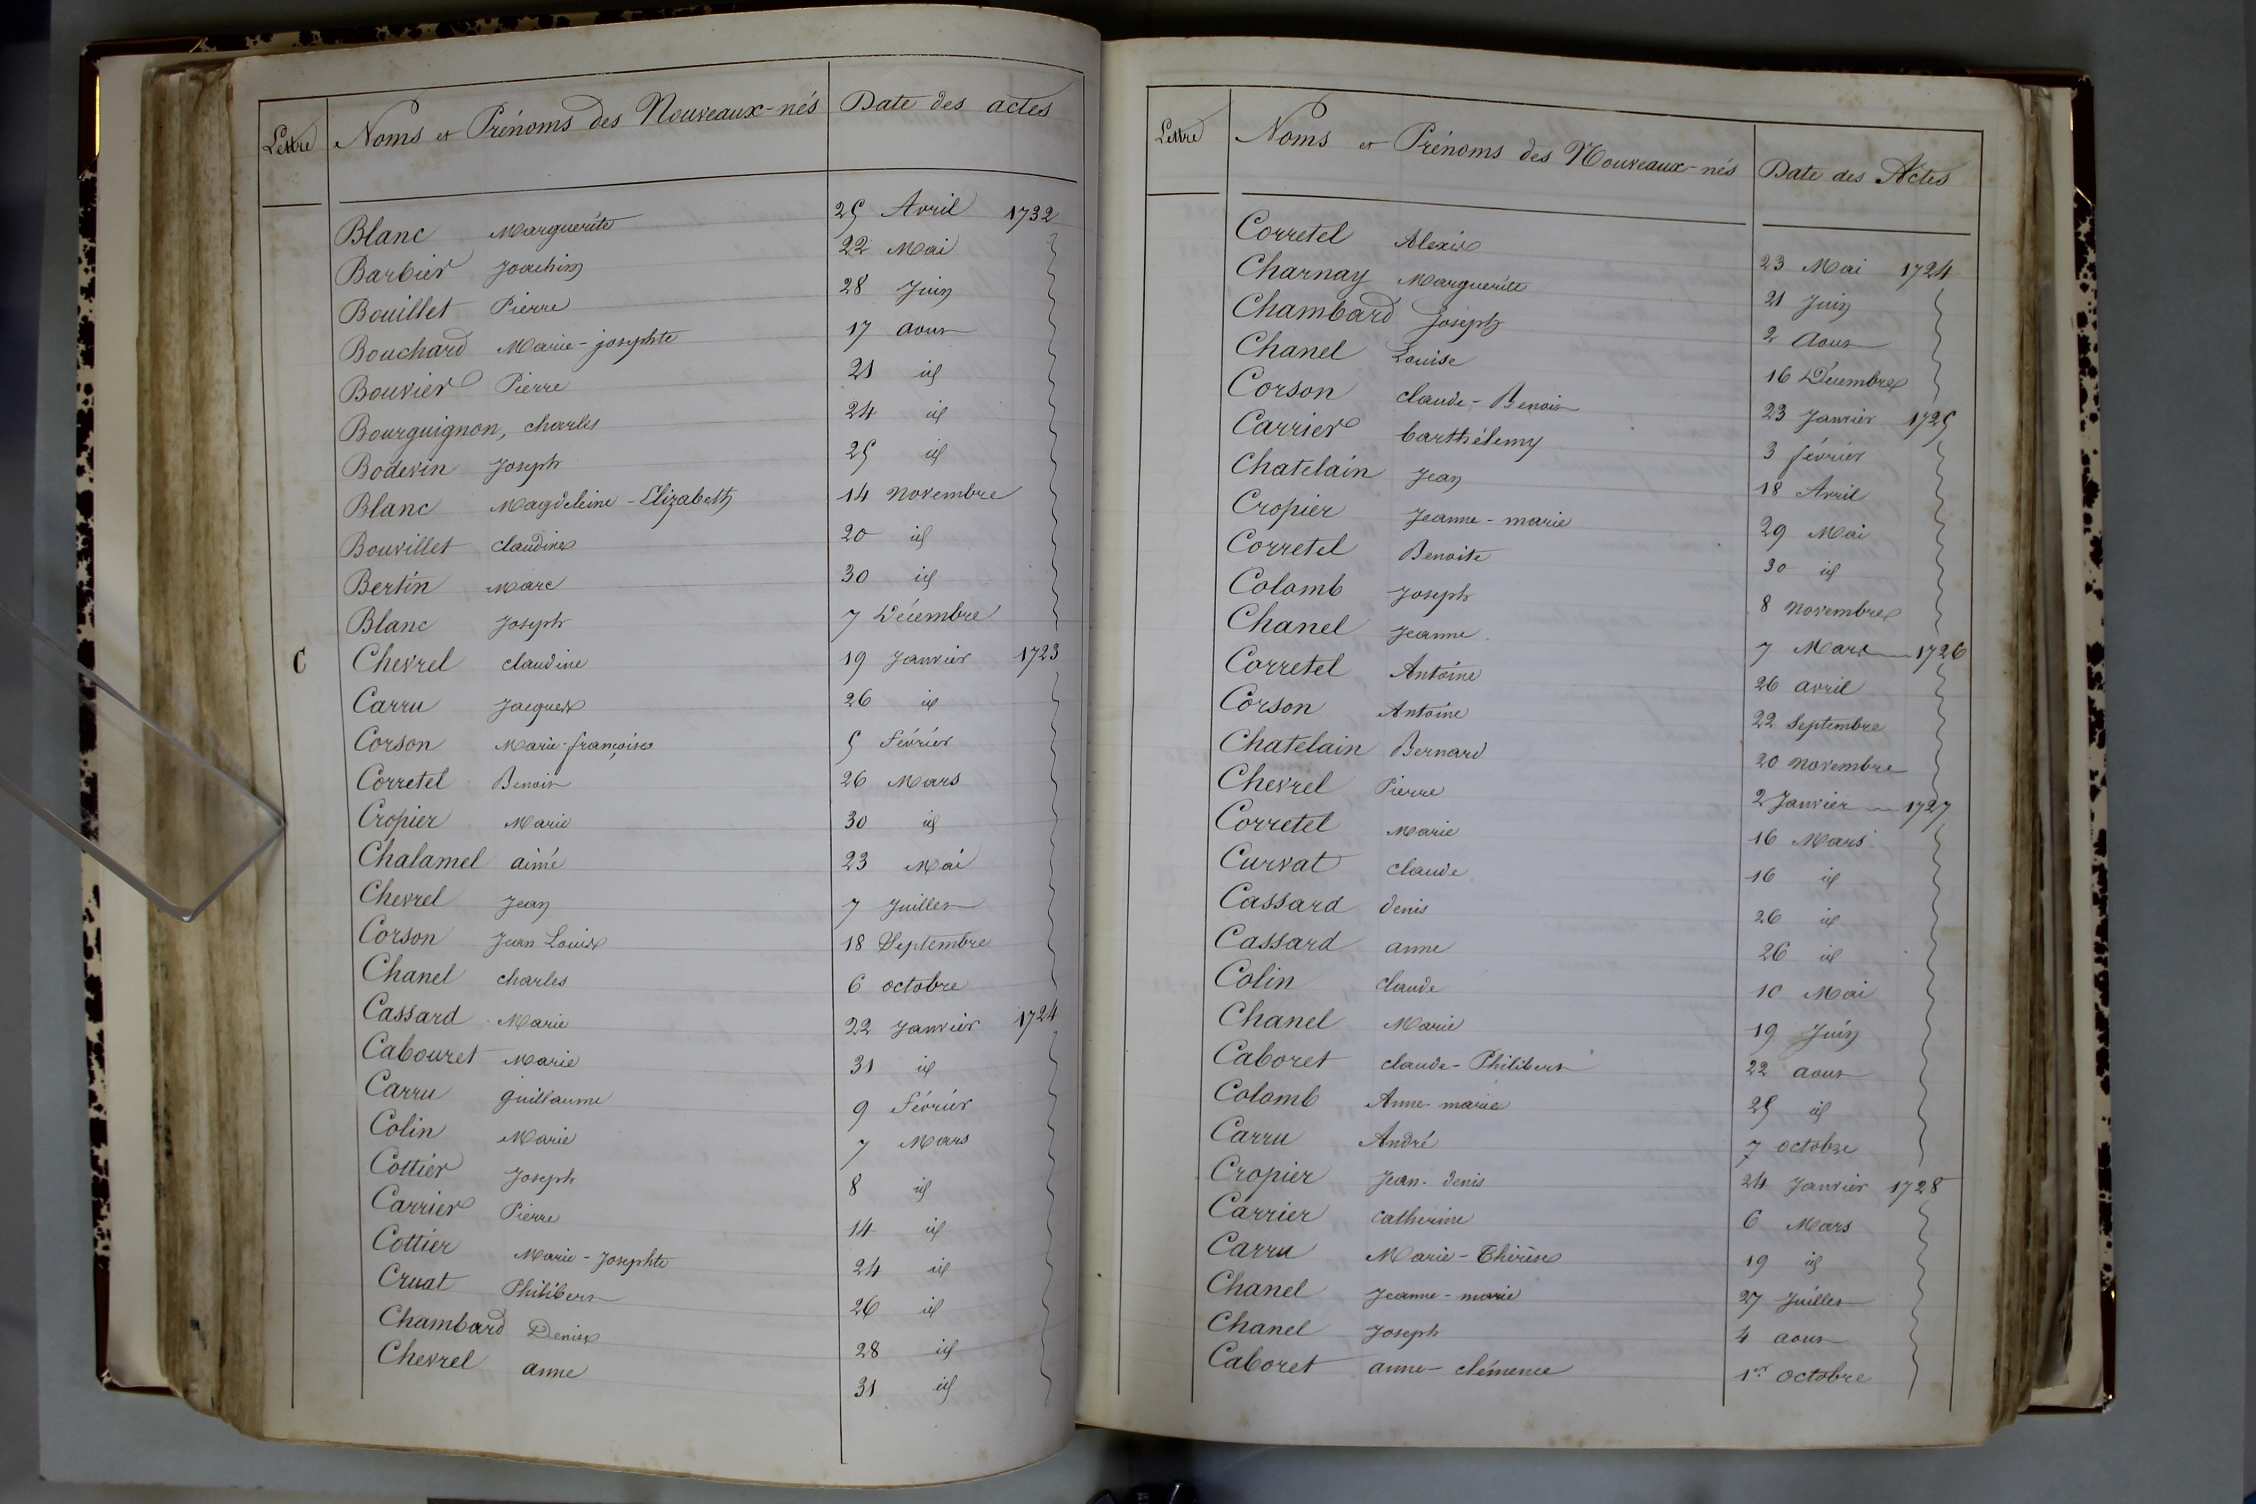 Lettre Noms et Prénoms des Nouveaux-nés Date des actes
Blanc Marguerite 25 Avril 1732
Barbier Joachim 22 Mai
Bouillet Pierre 28 Juin
Bouchard Marie-josephte 17 aout
Bouvier Pierre 21 id
Bourguignon, charles 24 id
Bodevin Joseph 25 id
Blanc Magdeleine-Elizabeth 14 novembre
Bouvillet claudine 20 id
Bertin Marc 30 id
Blanc Joseph 7 Décembre
C Chevrel claudine 19 Janvier 1723
Carru Jacques 26 id
Corson Marie-françoise 5 Février
Corretel Benoit 26 Mars
Cropier Marie 30 id
Chalamel aimé 23 Mai
Chevrel Jean 7 Juillet
Corson Jean Louis 18 Septembre
Chanel charles 6 octobre
Cassard Marie 22 Janvier 1724
Cabouret Marie 31 id
Carru guillaume 9 Février
Colin Marie 7 Mars
Cottier Joseph 8 id
Carrier Pierre 14 id
Cottier Marie-Josephte 24 id
Cruat Philibert 26 id
Chambard Denis 28 id
Chevrel anne 31 id
Lettre Noms et Prénoms des Nouveaux-nés Date des Actes
Corretel Alexis 23 Mai 1724
Charnay Marguerite 21 Juin
Chambard Joseph 2 Aout
Chanel Louise 16 Décembre
Corson claude-Benoit 23 Janvier 1725
Carrier barthélemy 3 février
Chatelain Jean 18 Avril
Cropier Jeanne-marie 29 Mai
Corretel Benoite 30 id
Colomb Joseph 8 novembre
Chanel Jeanne 7 Mars 1726
Corretel Antoine 26 avril
Corson Antoine 22 Septembre
Chatelain Bernard 20 novembre
Chevrel Pierre 2 Janvier 1727
Corretel Marie 16 Mars
Curvat claude 16 id
Cassard denis 26 id
Cassard anne 26 id
Colin claude 10 Mai
Chanel Marie 19 Juin
Caboret claude-Philibert 22 aout
Colomb Anne-marie 25 id
Carru André 7 octobre
Cropier Jean-denis 24 Janvier 1728
Carrier catherine 6 Mars
Carru Marie-Thérèse 19 id
Chanel Jeanne-marie 27 Juillet
Chanel Joseph 4 aout
Caboret anne-clémence 1er octobre